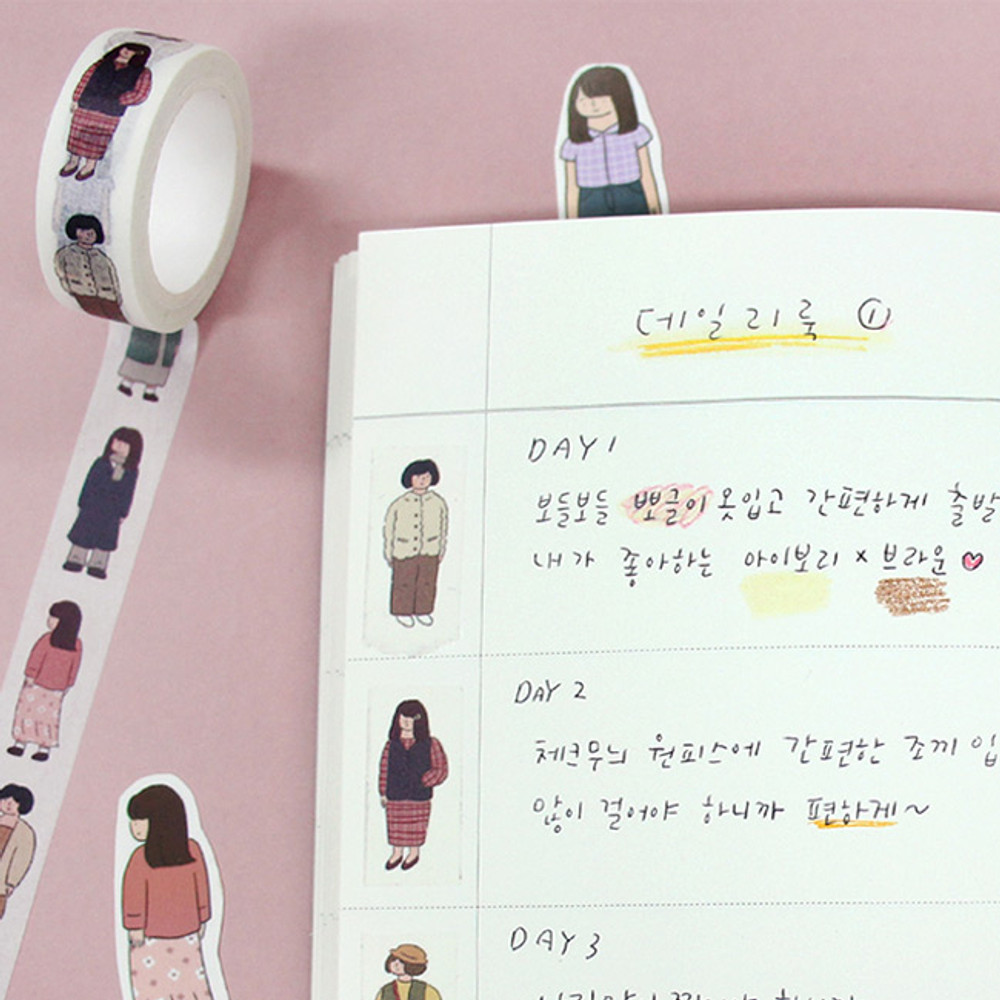 데일리룩 ①
DAY 1
보들보들 뽀글이 옷입고 간편하게 출발
내가 좋아하는 아이보리 x 브라운 ♡
DAY 2
체크무늬 원피스에 간편한 조끼 입
많이 걸어야 하니까 편하게~
DAY 3